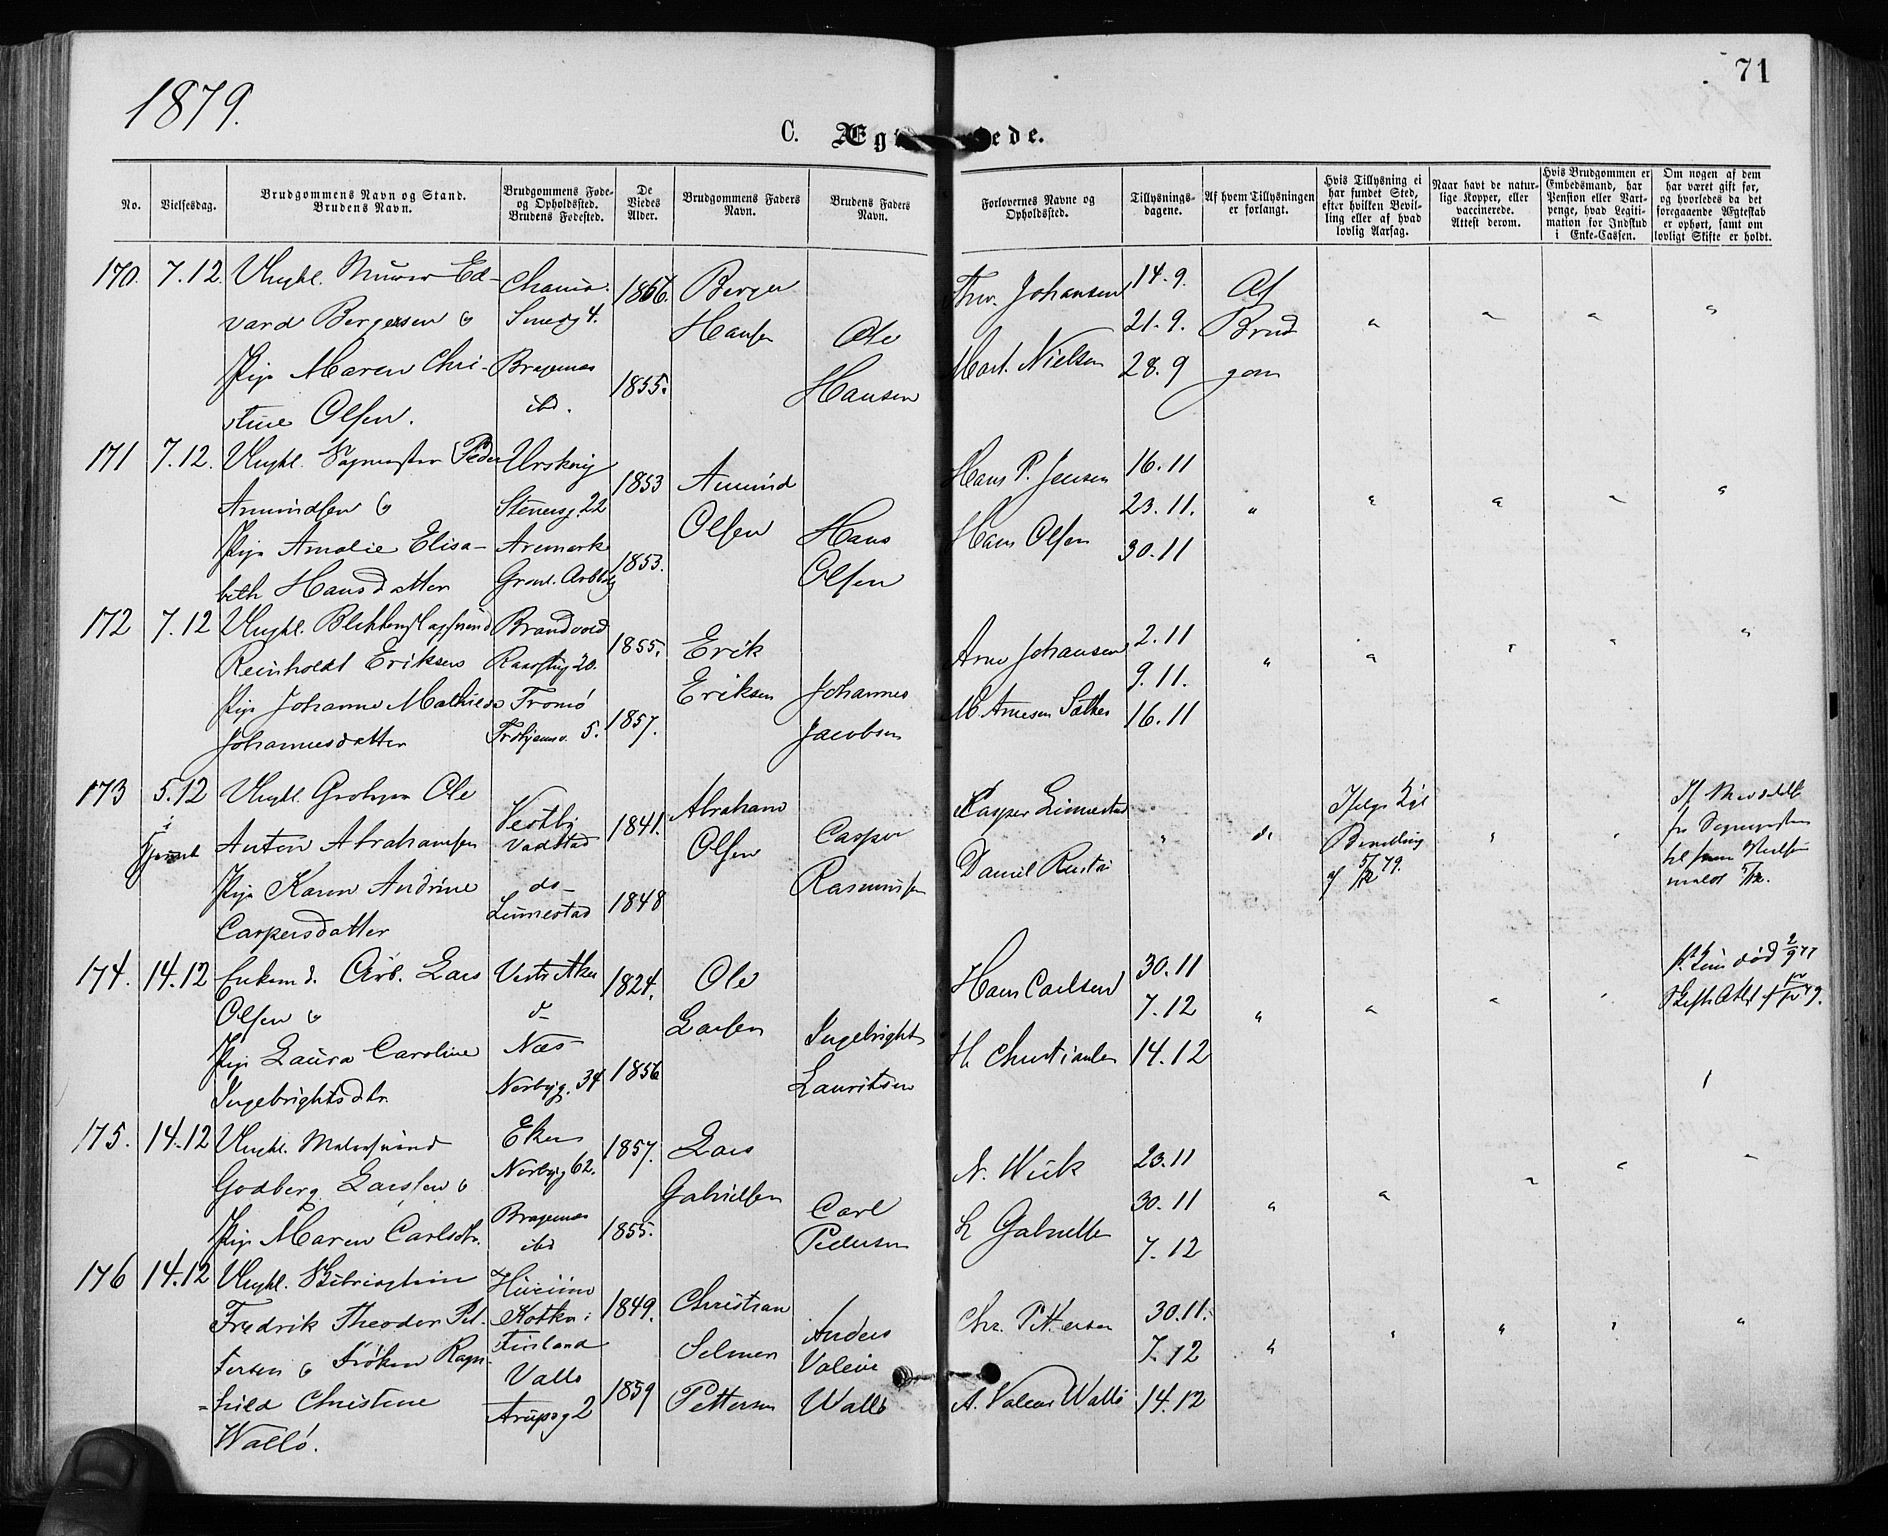 1879.
71
C. Æg ede.
No.
Vielsesdag.
Brudgommens Navn og Stand.
Brudens Navn.
Brudgommens Føde-
og Opholdssted.
Brudens Fødested.
De
Viedes
Alder.
Brudgommens Faders
Navn.
Brudens Faders
Navn.
Forlovernes Navne og
Opholdssted.
Tillysnings-
dagene.
Af hvem Tillysningen
er forlangt.
Hvis Tillysning ei
har fundet Sted,
efter hvilken Bevil-
ling eller af hvad
lovlig Aarsag.
Naar havt de natur-
lige Kopper, eller
vaccinerede.
Attest derom.
Hvis Brudgommen er
Embedsmand, har
Pension eller Vart-
penge, hvad Legiti-
mation for Indskud
i Enke-Cassen.
Om nogen af dem
har været gift før,
og hvorledes da det
foregaaende Ægteskab
er ophørt, samt om
lovligt Skifte er holdt.
170. 7.12. Ungkl. Murer Ed-
vard Bergersen o
Pige Maren Chri-
stine Olsen.
Smedg 4.
Bragernæs
ibd.
1856.
1855.
Berger
Hansen
Ole
Hansen
Thor. Johansen
Mart. Nielsen
14.9.
21.9.
28.9
Af
Brud
gom
171 7.12. Ungkl. Peder
Amundsen o
Pige Amalie Elisa-
beth Hansdatter
Urskoug
Stenersg. 22
Aremark
1853
1853.
Amund
Olsen
Hans
Olsen
Hans P. Jensen
Hans Olsen
16.11
23.11.
30.11
172 7.12 Ungkl.
Reinholdt Eriksen
Pige Johanne Mathilde
Johannesdatter
Brandvold
20.
Tromø
5.
1855.
1857.
Erik
Eriksen
Johannes
Jacobsen
Arne Johansen
M. Arnesen Sæther
2.11
9.11.
16.11
173 5.12
i
Ungkl. Ole
Anton Abrahamsen
Pige Karen Andrine
Caspersdatter
Vestby
Vadstad
do-
Linnestad
1841.
1848
Abraham
Olsen
Casper
Rasmussen
Kasper Linnestad
Daniel
Ifølge Kgl
Bevilling
af 5/12 79.
174. 14.12 Enkemd. Arb. Lars
Olsen o
Pige Laura Caroline
Ingebrightsdtr.
Vestre Aker
Næs
Norbyg. 34
1824.
1856
Ole
Larsen
Ingebright
Lauritsen
Hans Carlsen
H. Christiansen
30.11
7.12
14.12
175. 14.12 Ungkl. Malersvend
Godberg Larsen o
Pige Maren Carlsdtr.
Eker
Norbyg 62.
Bragernæs
ibd
1857.
1855.
Lars
Gabrielsen
Carl
Pedersen
N. Wiik
L Gabrielsen
23.11
30.11
7.12
176 14.12 Ungkl.
Fredrik Theodor Pet-
tersen o Frøken Ragn-
hild Christine
Wallö.
Kotka i
Finland
Vallø
Arupsg 2
1849.
1859
Christian
Selmer
Pettersen
Anders
Wallö
Chr. Pettersen
30.11.
7.12
14.12